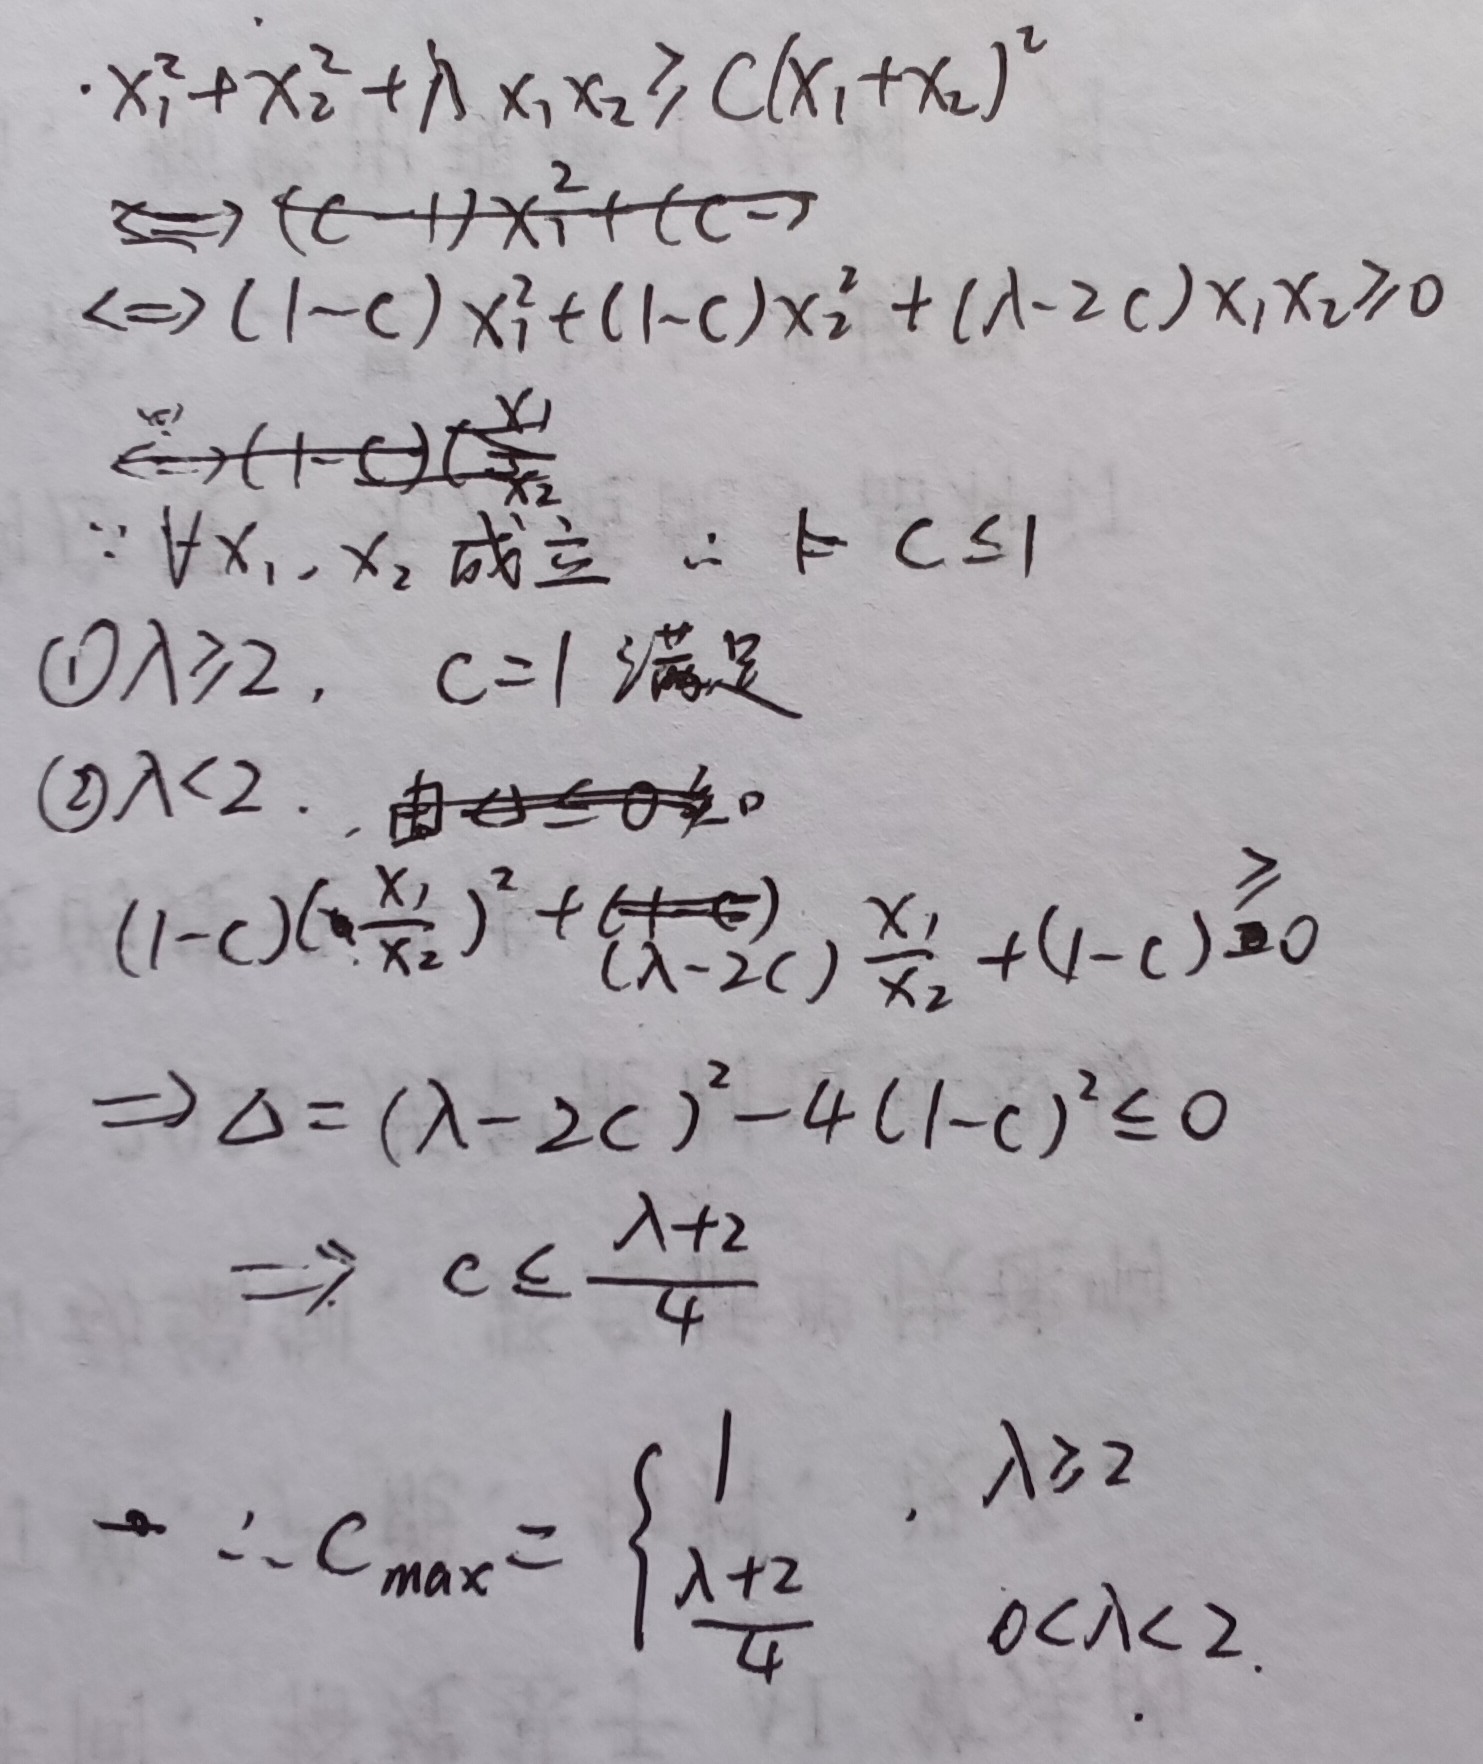 ·x₁²+x₂²+λx₁x₂≥C(x₁+x₂)²
⟺(C-1)x₁²+(C-
<=>(1-C)x₁²+(1-C)x₂²+(λ-2C)x₁x₂≥0
<=>(1-C)(x₁/x₂
∵∀x₁、x₂成立 ∴ C≤1
①λ≥2, C=1满足
②λ<2. 由Δ≤0
(1-C)(x₁/x₂)²+(1-C)(λ-2C)x₁/x₂+(1-C)≥0
⇒Δ=(λ-2C)²-4(1-C)²≤0
⇒ C≤(λ+2)/4
∴Cmax={1, λ≥2
(λ+2)/4 0<λ<2.